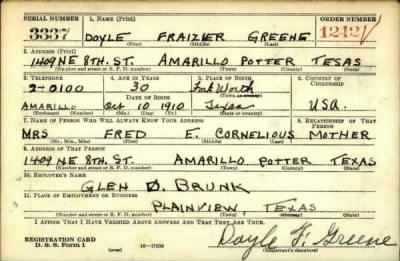 SERIAL NUMBER 1. NAME (Print) ORDER NUMBER
3337 DOYLE FRAIZIER GREENE 12421
(First) (Middle) (Last)
2. ADDRESS (Print)
1409 NE 8TH. ST. AMARILLO POTTER TEXAS
(Number and street or R. F. D. number) (Town) (County) (State)
3. TELEPHONE 4. AGE IN YEARS 5. PLACE OF BIRTH 6. COUNTRY OF CITIZENSHIP
2-0100 30 Fort Worth
DATE OF BIRTH (Town or county)
AMARILLO Oct 10 1910 Texas USA.
(Exchange) (Number) (Mo.) (Day) (Yr.) (State or country)
7. NAME OF PERSON WHO WILL ALWAYS KNOW YOUR ADDRESS 8. RELATIONSHIP OF THAT PERSON
MRS FRED E. CORNELIOUS MOTHER
(Mr., Mrs., Miss) (First) (Middle) (Last)
9. ADDRESS OF THAT PERSON
1409 NE 8TH. ST. AMARILLO POTTER TEXAS
(Number and street or R. F. D. number) (Town) (County) (State)
10. EMPLOYER'S NAME
GLEN D. BRUNK
11. PLACE OF EMPLOYMENT OR BUSINESS
PLAINVIEW, TEXAS
(Number and street or R. F. D. number) (Town) (County) (State)
I AFFIRM THAT I HAVE VERIFIED ABOVE ANSWERS AND THAT THEY ARE TRUE.
REGISTRATION CARD
D. S. S. Form 1 (over) 16-17105 Doyle F. Greene
(Registrant's signature)